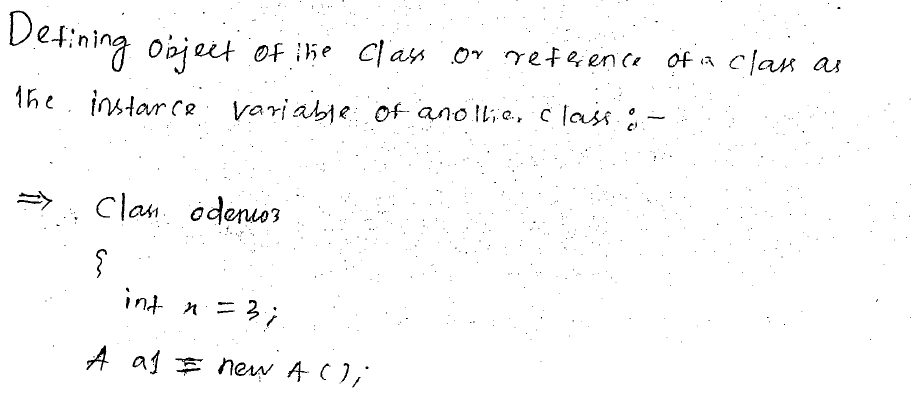 Defining object of the class or reference of a class as
the instance variable of another class :-
⇒ Class odemo3
{
int x = 3;
A a1 = new A();